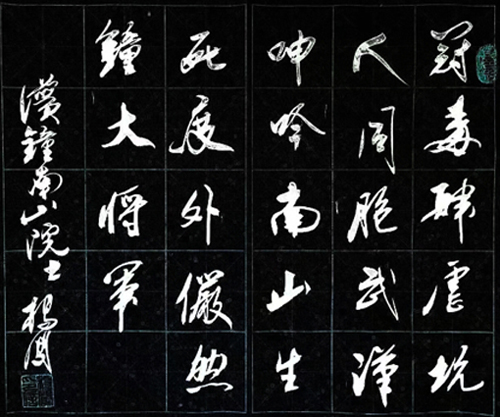 冠毒肆虐坑
人同胞武漢
呻吟南山生
死度外儼然
鐘大將軍
讚鐘南山院士楊鳳